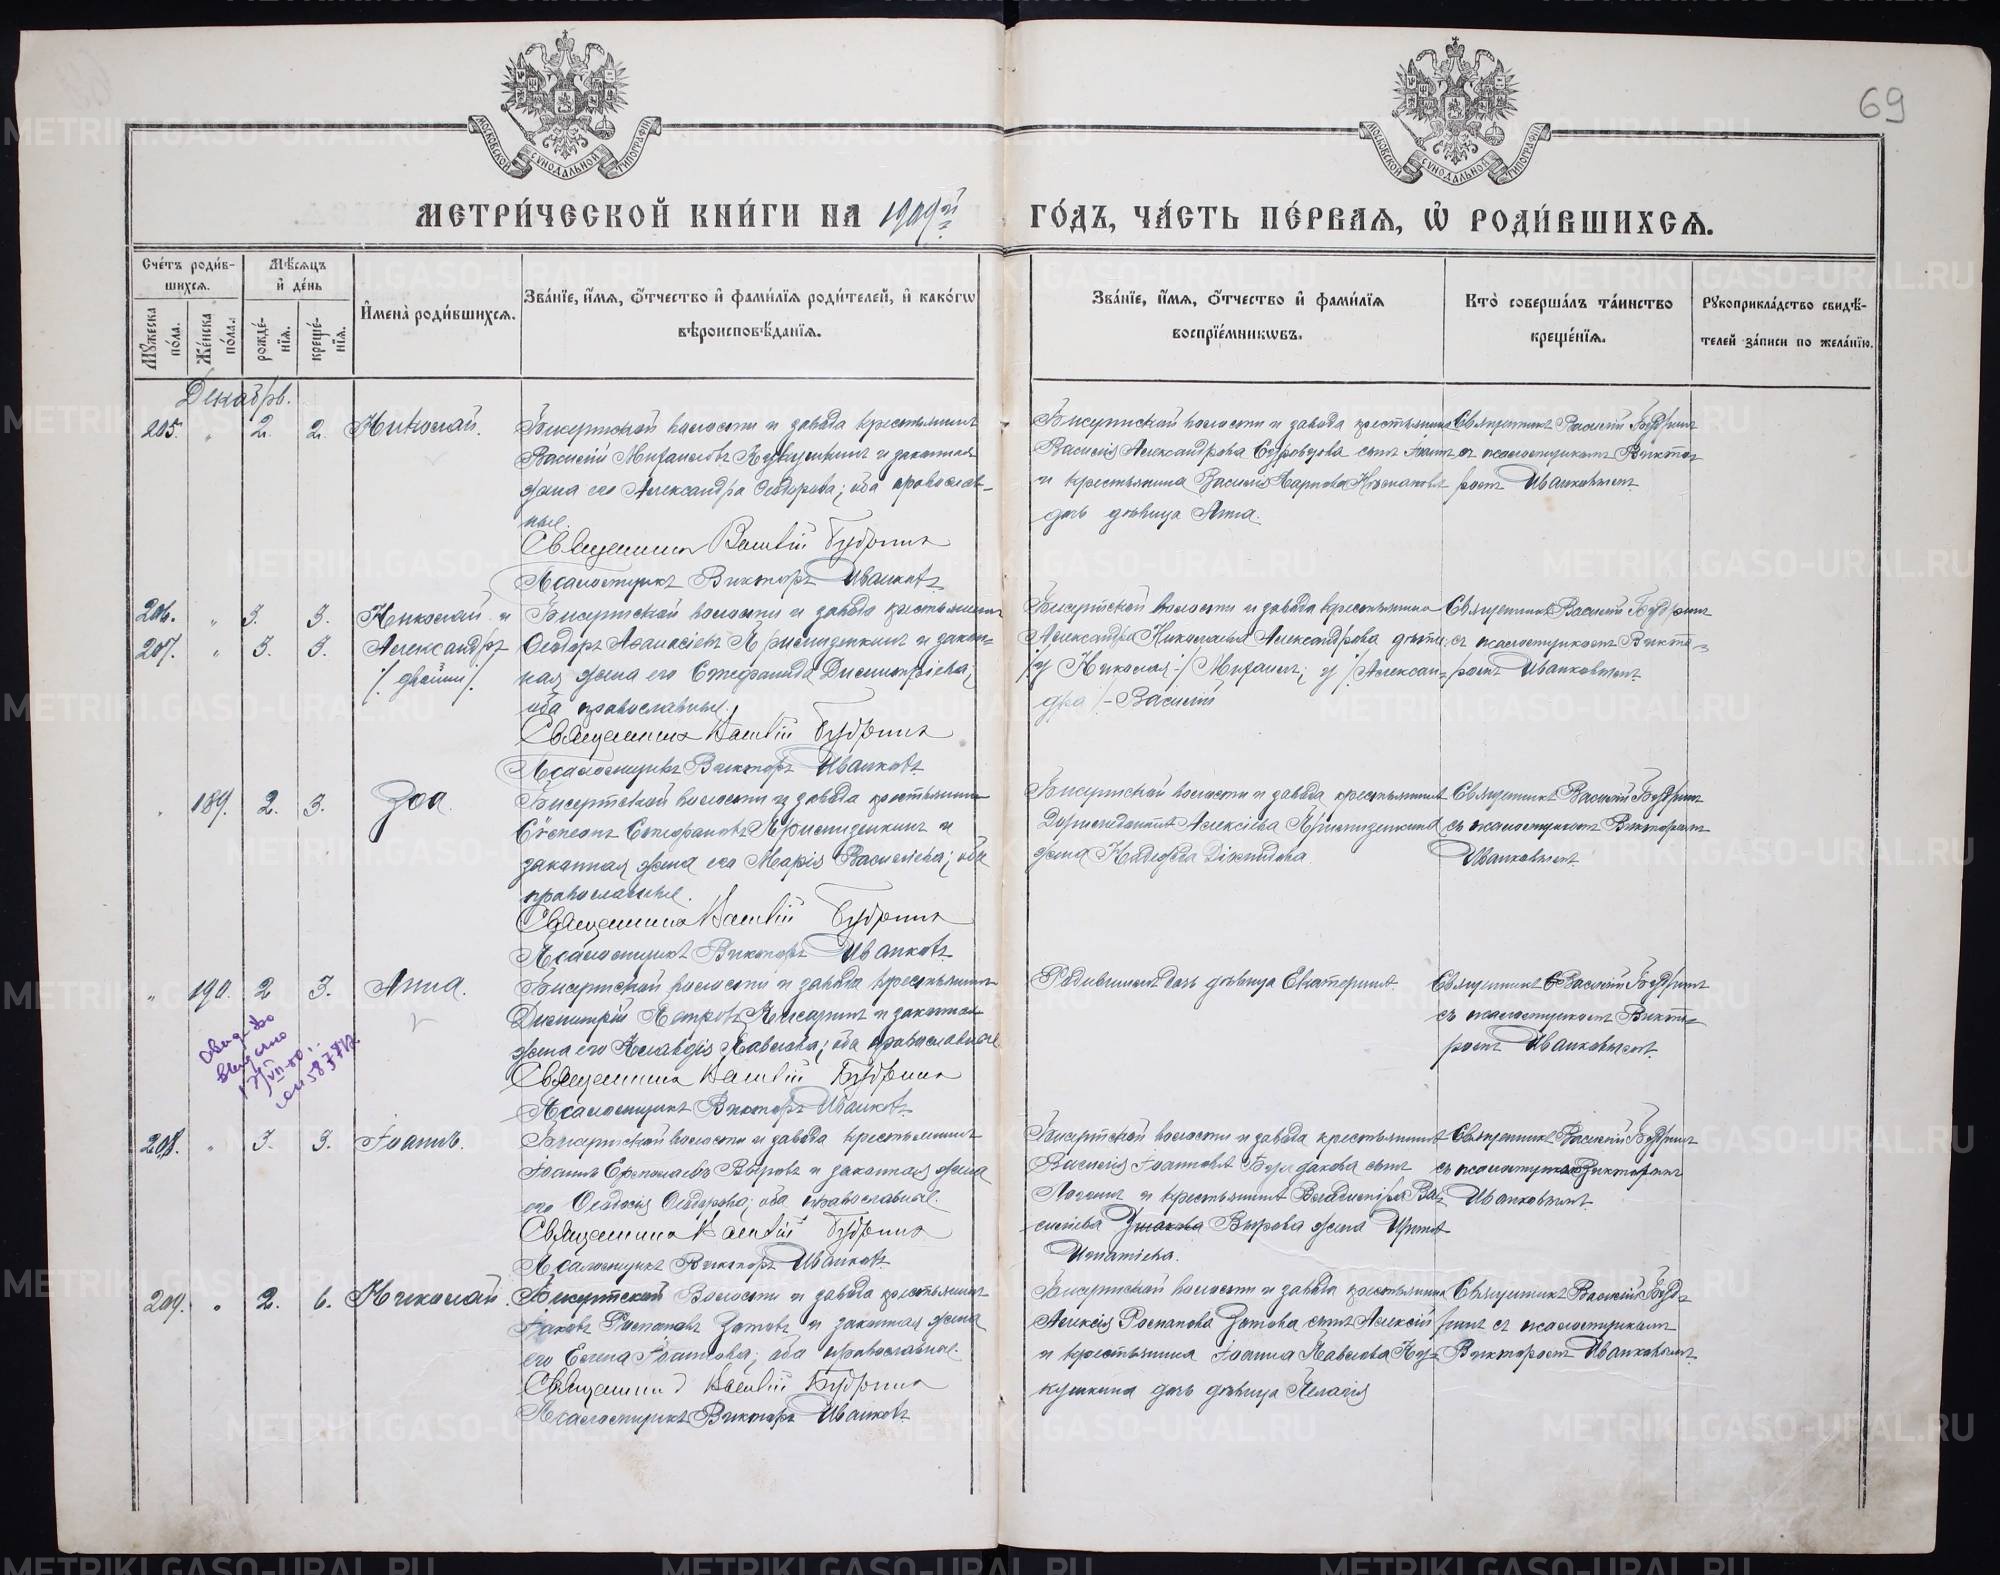 69
МОСКОВСКОЙ СѴНОДАЛЬНОЙ ТИПОГРАФІИ
МОСКОВСКОЙ СѴНОДАЛЬНОЙ ТИПОГРАФІИ
МЕТРИ́ЧЕСКОЙ КНИ́ГИ НА 1909й
ГО́ДЪ, ЧА́СТЬ ПЕ́РВАѦ, Ѿ РОДИ́ВШИХСѦ.
Сче́тъ роди́в-
шихсѧ.
Мѣ́сѧцъ
и҆ де́нь
Мꙋ́жеска
по́ла.
Же́нска
по́ла.
рожде́-
нїѧ.
креще́-
нїѧ.
И҆мена̀ роди́вшихсѧ.
Зва́нїе, и҆́мѧ, ѻ҆́тчество и҆ фами́лїѧ роди́телей, и҆ како́гѡ
вѣроисповѣ́данїѧ.
Зва́нїе, и҆́мѧ, ѻ҆́тчество и҆ фами́лїѧ
воспрїе́мникѡвъ.
Кто̀ соверша́лъ та́инство
креще́нїѧ.
Рꙋкоприкла́дство свидѣ́-
телей за́писи по жела́нїю.
Декабрь.
205. " 2. 2. Николай.
Бисертской волости и завода крестьянинъ
Василій Михаиловъ Кукушкинъ и законная
жена его Александра Ѳедорова; оба православ-
ные.
Священникъ Василій Будринъ
Псаломщикъ Викторъ Иванковъ
Бисертской волости и завода крестьянина
Василія Александрова сынъ
и крестьянина Василія Карпова
дочь дѣвица Анна.
Священникъ Василій Будринъ
съ псаломщикомъ Викто-
ромъ Иванковымъ.
206. " 3. 3. Николай и
207. " 3. 3. Александръ
/двойни/.
Бисертской волости и завода крестьянинъ
Ѳедоръ Аѳанасіевъ и закон-
ная жена его Стефанида Димитріева;
оба православные.
Священникъ Василій Будринъ
Псаломщикъ Викторъ Иванковъ
Бисертской волости и завода крестьянина
Александра Николаева Александрова дѣти:
/у Николая/ Михаилъ; у /Алексан-
дра/ - Василій
Священникъ Василій Будринъ
съ псаломщикомъ Викто-
ромъ Иванковымъ.
" 189. 2. 3. Зоа.
Бисертской волости и завода крестьянинъ
Стефановъ и
законная жена его Марія Василіева; оба
православные.
Священникъ Василій Будринъ
Псаломщикъ Викторъ Иванковъ
Бисертской волости и завода крестьянина
Алексіева
жена Надежда
Священникъ Василій Будринъ
съ псаломщикомъ Викторомъ
Иванковымъ.
" 190. 2 3. Анна.
Бисертской волости и завода крестьянинъ
Димитрій Петровъ и законная
жена его Клавдія Павлова; оба православные
Священникъ Василій Будринъ
Псаломщикъ Викторъ Иванковъ
Родившихъ дочь дѣвица Екатерина.
Священникъ Василій Будринъ
съ псаломщикомъ Викто-
ромъ Иванковымъ.
208. " 3. 3. Іоаннъ.
Бисертской волости и завода крестьянинъ
Іоаннъ Выровъ и законная жена
его Ѳеодосія Ѳедорова; оба православные.
Священникъ Василій Будринъ
Псаломщикъ Викторъ Иванковъ
Бисертской волости и завода крестьянина
Василія Іоаннова сынъ
и крестьянина Владиміра Ва-
силіева Вырова жена Ирина
Игнатіева.
Священникъ Василій Будринъ
съ псаломщикомъ Викторомъ
Иванковымъ.
209. " 2. 6. Николай.
Бисертской волости и завода крестьянинъ
Іаковъ Зотовъ и законная жена
его Елена Іоаннова; оба православные.
Священникъ Василій Будринъ
Псаломщикъ Викторъ Иванковъ
Бисертской волости и завода крестьянина
Алексія Зотова сынъ Алексій
и крестьянина Іоанна Павлова Ку-
кушкина дочь дѣвица Пелагія
Священникъ Василій Буд-
ринъ съ псаломщикомъ
Викторомъ Иванковымъ.
METRIKI.GASO-URAL.RU